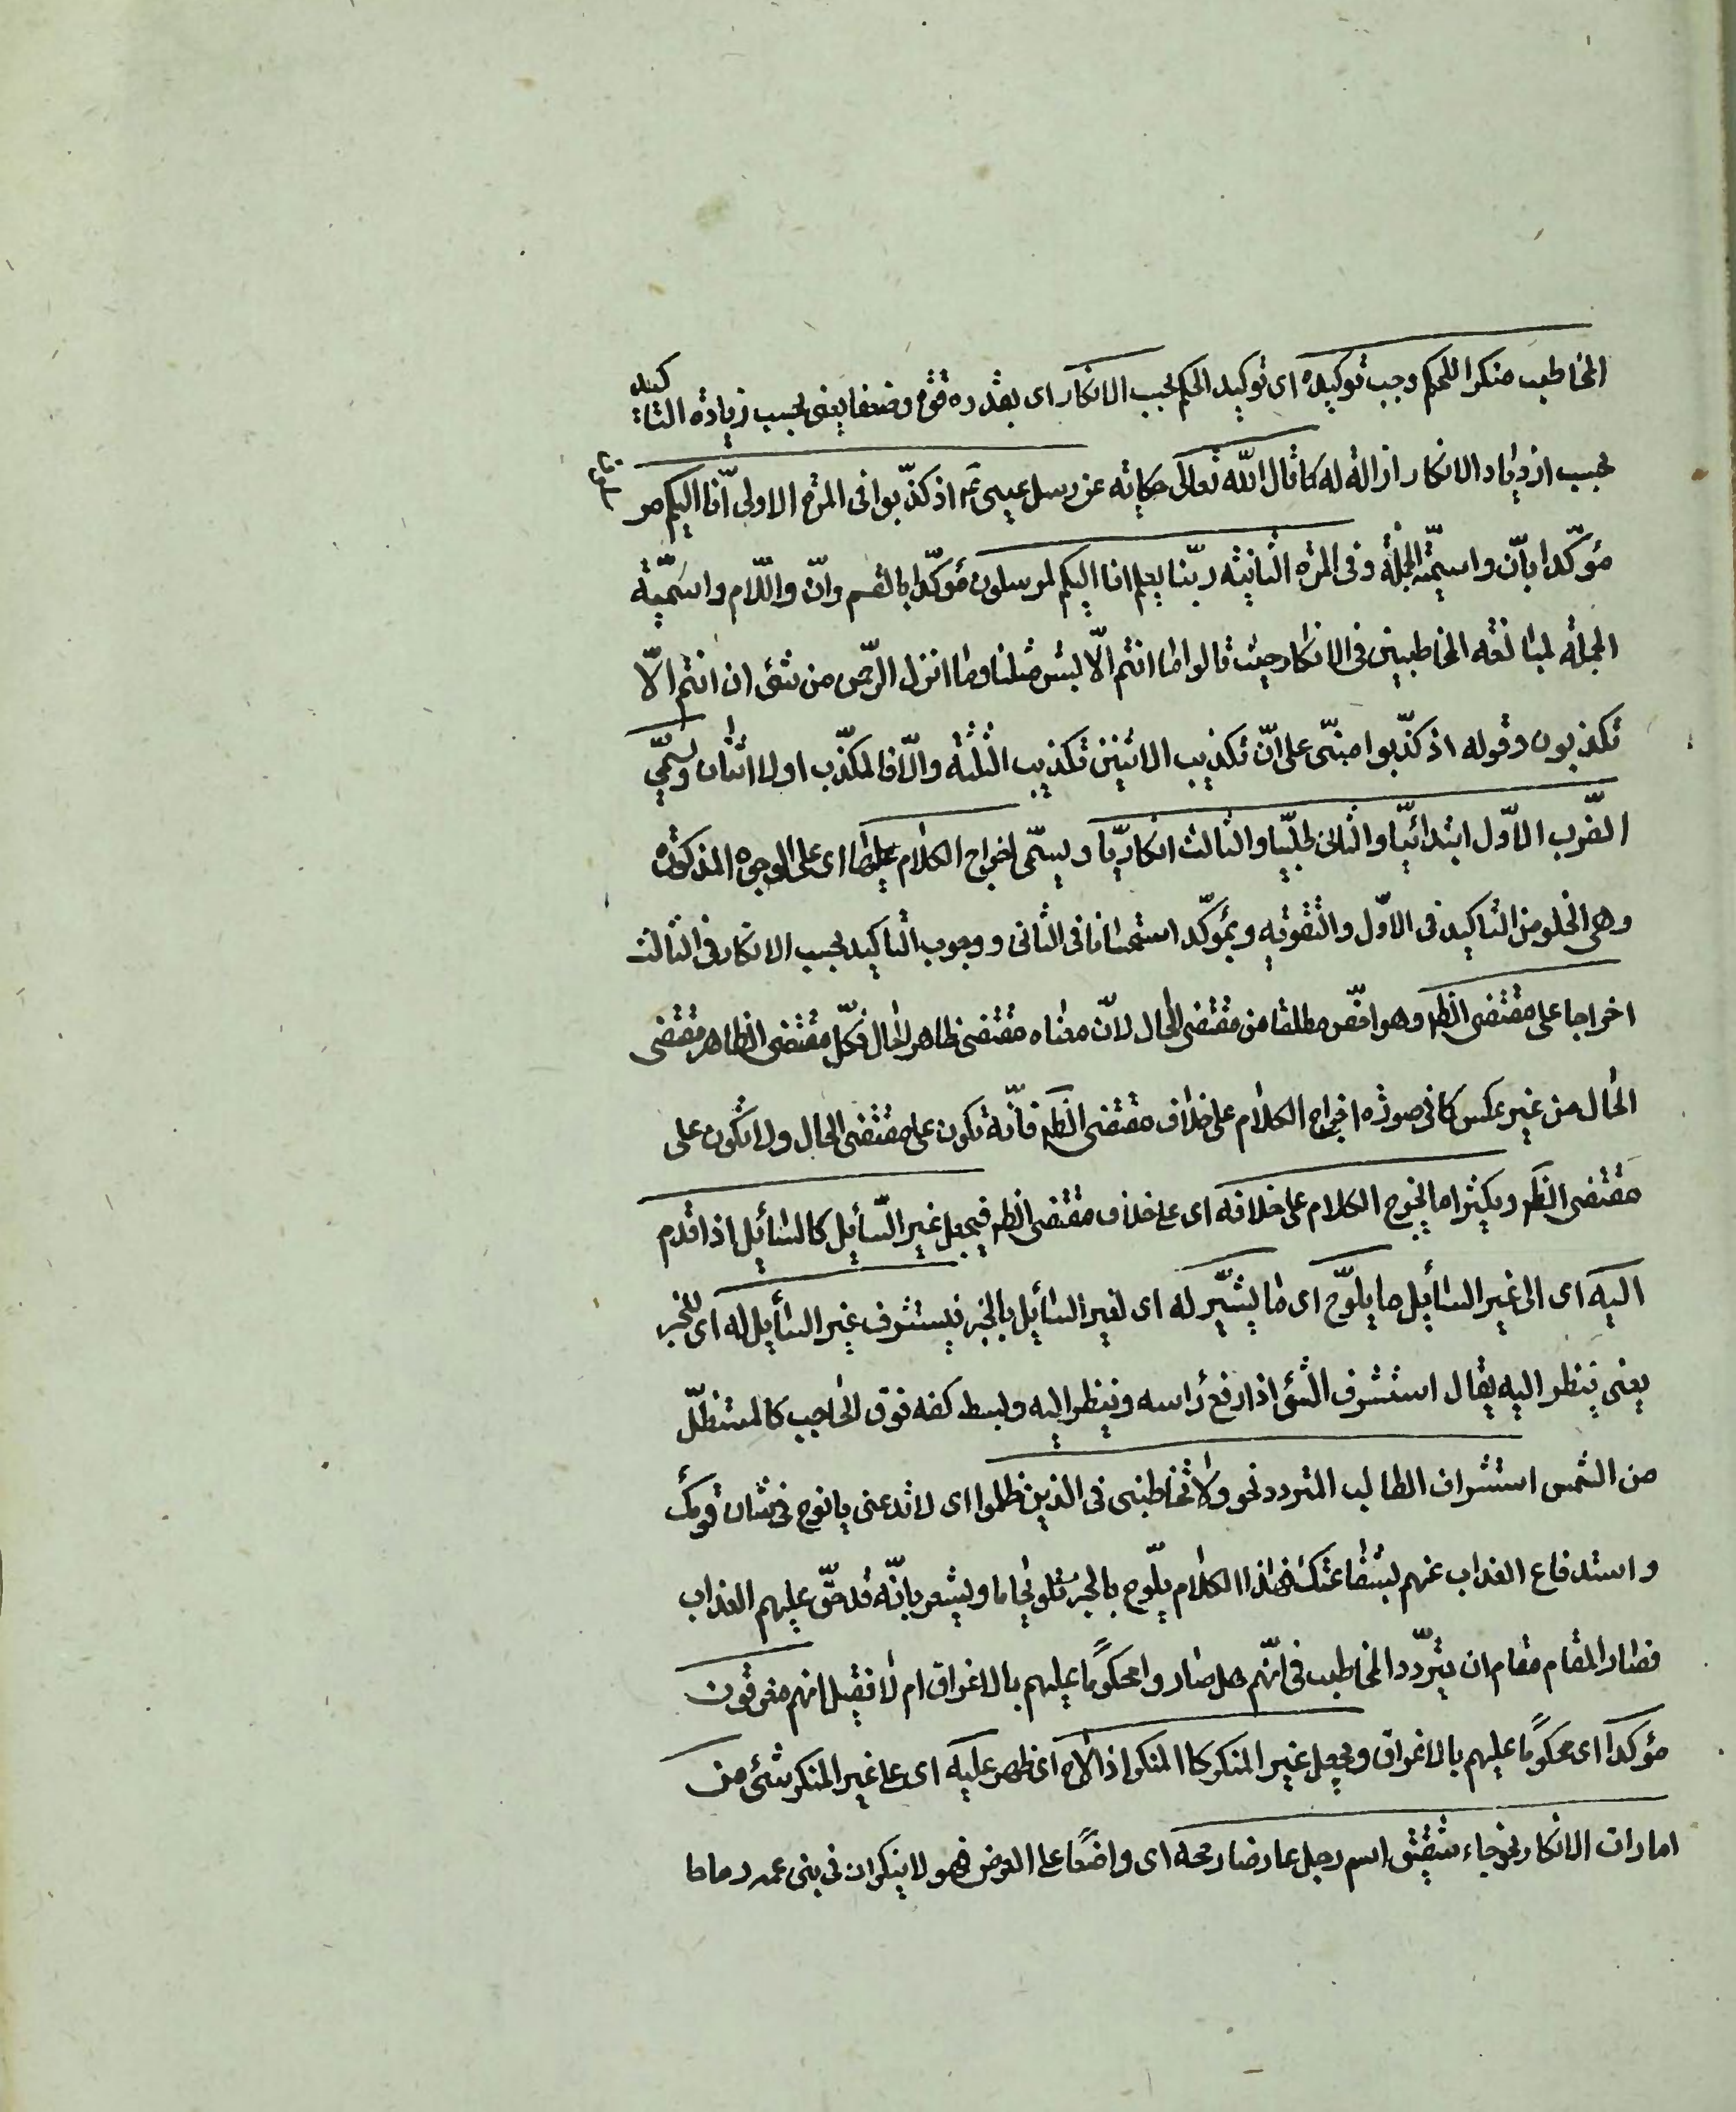 المخاطب منكرا للحكم وجب توكيده اى توكيد الحكم بحسب الانكار اى بقدره قوة وضعفا يعنى بحسب زيادة التاكيد
بحسب ازدياد الانكار ازالة له كما قال الله تعالى حكاية عن رسل عيسى عم اذ كذّبوا فى المرة الاولى انّا اليكم مرسلون
مؤكّدا بانّ واسميّة الجملة وفى المرة الثانية ربّنا يعلم انا اليكم لمرسلون مؤكّدا بالقسم وانّ واللّام واسميّة
الجملة لمبالغة المخاطبين فى الانكار حيث قالوا ما انتم الّا بشر مثلنا وما انزل الرّحمن من شئ ان انتم الّا
تكذبون وقوله اذ كذّبوا مبنّى على انّ تكذيب الاثنين تكذيب الثلثة والّا فالمكذّب اولا اثنان ويسمّى
الضّرب الاوّل ابتدائيّا والثانى طلبيّا والثالث انكاريّا ويسمّى اخراج الكلام عليها اى على الوجوه المذكورة
وهى الخلو من التاكيد فى الاوّل والتقوية بمؤكّد استحسانا فى الثانى ووجوب التاكيد بحسب الانكار فى الثالث
اخراجا على مقتضى الظم وهو اخصّ مطلقا من مقتضى الحال لانّ معناه مقتضى ظاهر الحال فكلّ مقتضى الظاهر مقتضى
الحال من غير عكس كما فى صورة اخراج الكلام على خلاف مقتضى الظم فانّه تكون على مقتضى الحال ولا تكون على
مقتضى الظم وكيثرا ما يخرج الكلام على خلافه اى على خلاف مقتضى الظم فيجعل غير السّائل كالسائل اذا قدم
اليه اى الى غير السائل ما يلوّح اى ما يشيّر له اى لغير السائل بالخبر فيستشرف غير السائل له اى للخبر
يعنى ينظر اليه يقال استشرف الشئ اذا رفع رأسه وينظر اليه وبسط كفه فوق الحاجب كالمستظلّ
من الشمس استشراف الطالب المتردد نحو ولا تخاطبنى فى الذين ظلموا اى لا تدعنى يا نوح فى شان قومك
واستدفاع العذاب عنهم بشفاعتك فهذا الكلام يلّوح بالخبر تلويحا ما ويشعر بانّه قد حقّ عليهم العذاب
فصار المقام مقام ان يتردّد المخاطب فى انّهم هل صاروا محكوما عليهم بالاغراق ام لا فقيل انهم مغرقون
مؤكدا اى محكوما عليهم بالاغراق ويجعل غير المنكر كا المنكر اذا لاح اى ظهر عليه اى على غير المنكر شئ من
امارات الانكار نحو جاء شقيق اسم رجل عارضا رمحه اى واضعا على العرض فهو لا ينكر ان فى بنى عمه رماحا